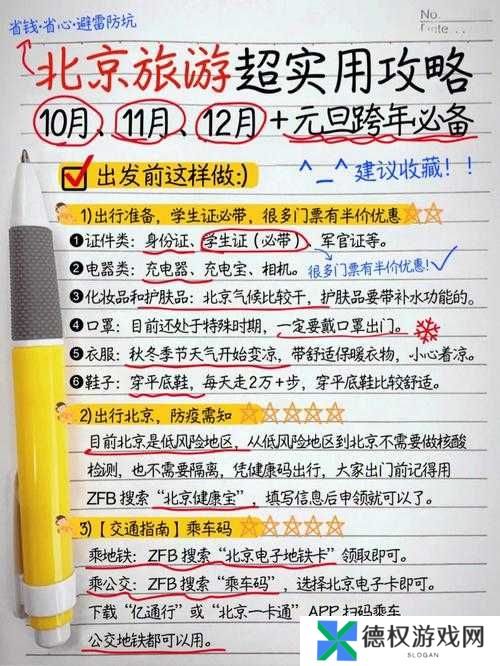 省钱·省心·避雷防坑
No.
北京旅游超实用攻略
10月、11月、12月+元旦跨年必备
出发前这样做:)
^_^建议收藏!!
1)出行准备，学生证必带，很多门票有半价优惠
❶证件类：身份证、学生证（必带）、军官证等。
❷电器类：充电器、充电宝、相机。
很多门票有半价优惠!
❸化妆品和护肤品：北京气候比较干，护肤品要带补水功能的。
❹口罩：目前还处于特殊时期，一定要戴口罩出门。
❺衣服：秋冬季节天气开始变凉，带舒适保暖衣物，小心着凉。
❻鞋子：穿平底鞋，每天走2万+步，穿平底鞋比较舒适。
2)出行北京，防疫需知
目前北京是低风险地区，从低风险地区到北京不需要做核酸
检测，也不需要隔离，凭健康码出行，大家出门前记得用
ZFB搜索“北京健康宝”，填写信息后申领就可以了。
3)【交通指南】乘车码
乘地铁：ZFB搜索“北京电子地铁卡”领取即可。
乘公交：ZFB搜索“乘车码”，选择北京电子卡即可。
下载“亿通行”或“北京一卡通”APP扫码乘车
公交地铁都可以用。
德权游戏网
SLOGAN